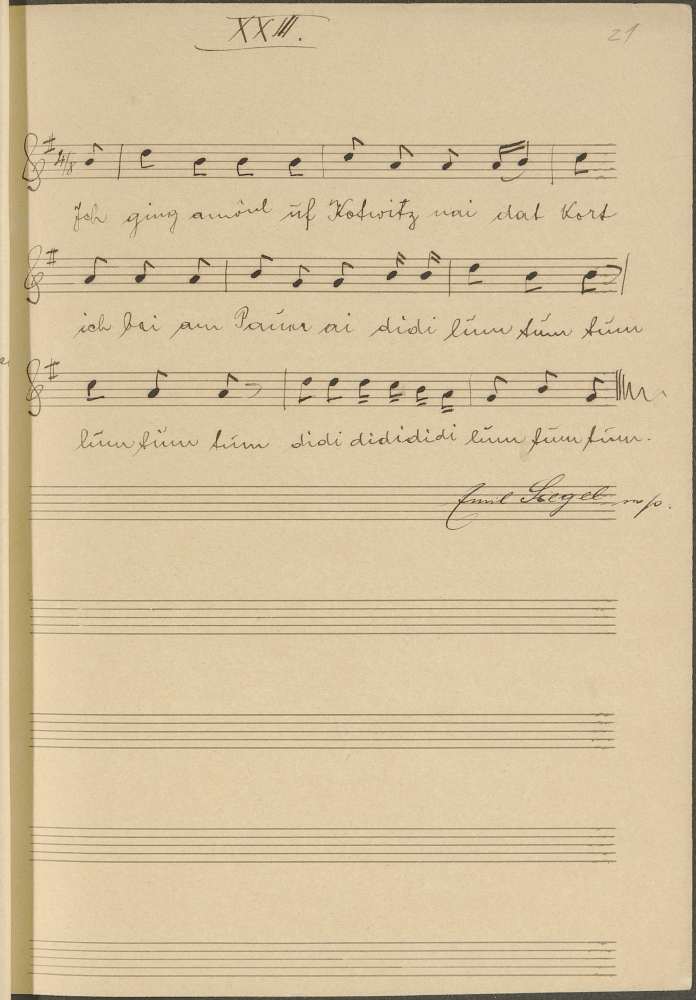 XXIII.
21
4/8
Ich ging amoul uf Kotwitz nai dat kort
ich bei am Pauer ai didi lum tum tum
lum tum tum didi didididi lum tum tum.
Emil